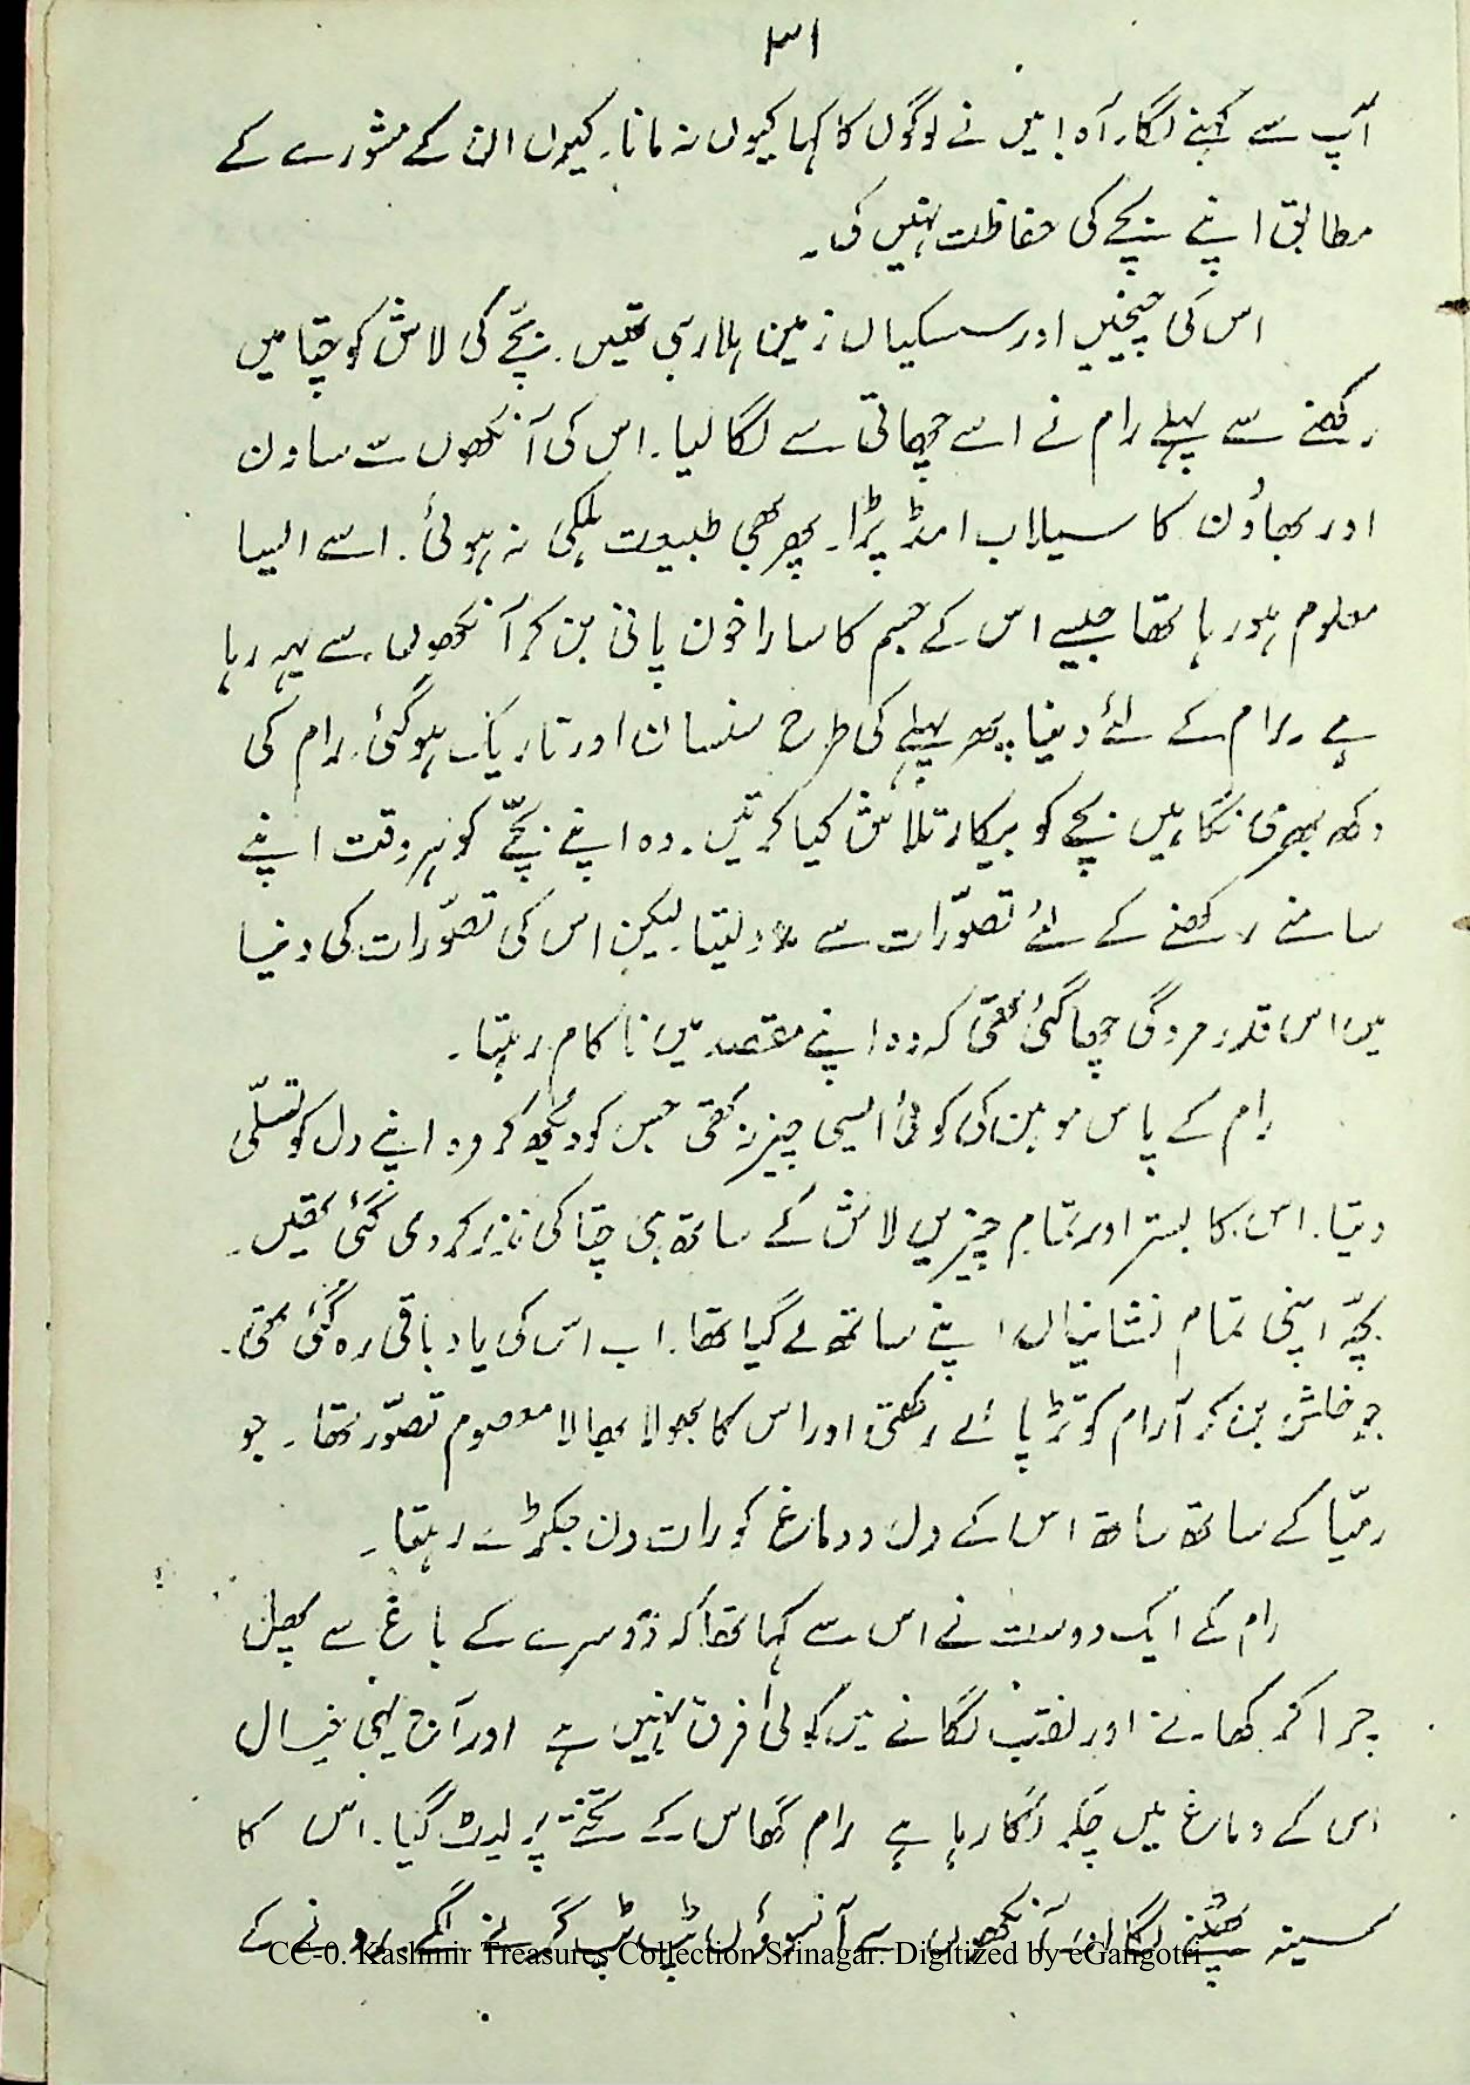 ۳۱
آپ سے کہنے لگا۔ آہ! میں نے لوگوں کا کہا کیوں نہ مانا۔ کیوں ان کے مشورے کے
مطابق اپنے بچے کی حفاظت نہیں کی۔
اس کی چیخیں اور سسکیاں زمین ہلا رہی تھیں۔ بچّے کی لاش کو چتا میں
رکھنے سے پہلے رام نے اسے چھاتی سے لگا لیا۔ اس کی آنکھوں سے ساون
اور بھادُن کا سیلاب امڈ پڑا۔ پھر بھی طبیعت ہلکی نہ ہوئی۔ اسے ایسا
معلوم ہو رہا تھا جیسے اس کے جسم کا سارا خون پانی بن کر آنکھوں سے بہہ رہا
ہے۔ رام کے لئے دنیا پھر پہلے کی طرح سنسان اور تاریک ہو گئی۔ رام کی
دکھ بھری نگاہیں بچے کو بیکار تلاش کیا کرتیں۔ وہ اپنے بچّے کو ہر وقت اپنے
سامنے رکھنے کے لئے تصوّرات سے مدد لیتا۔ لیکن اس کی تصوّرات کی دنیا
میں اس قدر مردگی چھا گئی تھی کہ وہ اپنے مقصد میں ناکام رہتا۔
رام کے پاس موہن کی کوئی ایسی چیز نہ تھی جس کو دیکھ کر وہ اپنے دل کو تسلّی
دیتا۔ اس کا بستر اور تمام چیزیں لاش کے ساتھ ہی چتا کی نذر کر دی گئی تھیں۔
بچّہ اپنی تمام نشانیاں اپنے ساتھ لے گیا تھا۔ اب اس کی یاد باقی رہ گئی تھی۔
جو خلش بن کر آرام کو تڑپائے رکھتی اور اس کا بھولا بھالا معصوم تصوّر تھا۔ جو
رمیّا کے ساتھ ساتھ اس کے دل و دماغ کو رات دن جکڑے رہتا۔
رام کے ایک دوست نے اس سے کہا تھا کہ دُوسرے کے باغ سے پھل
چرا کر کھانے اور نقب لگانے میں کوئی فرق نہیں ہے اور آج یہی خیال
اس کے دماغ میں چکر لگا رہا ہے رام گھاس کے تختے پر لیٹ گیا۔ اس کا
سینہ پھٹنے لگا اور آنکھوں سے آنسوؤں ٹپ ٹپ گرنے لگے رونے کے
CC-0. Kashmir Treasures Collection Srinagar. Digitized by eGangotri